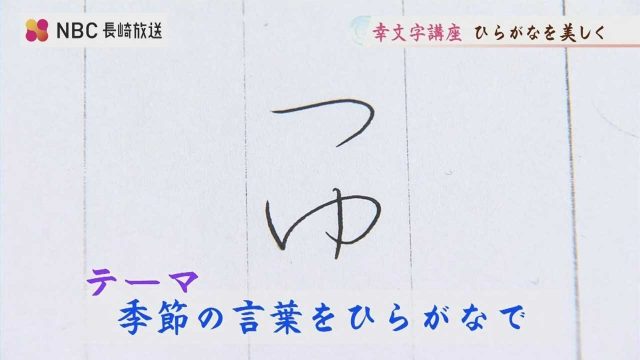 NBC 長崎放送
幸文字講座 ひらがなを美しく
つゆ
テーマ
季節の言葉をひらがなで